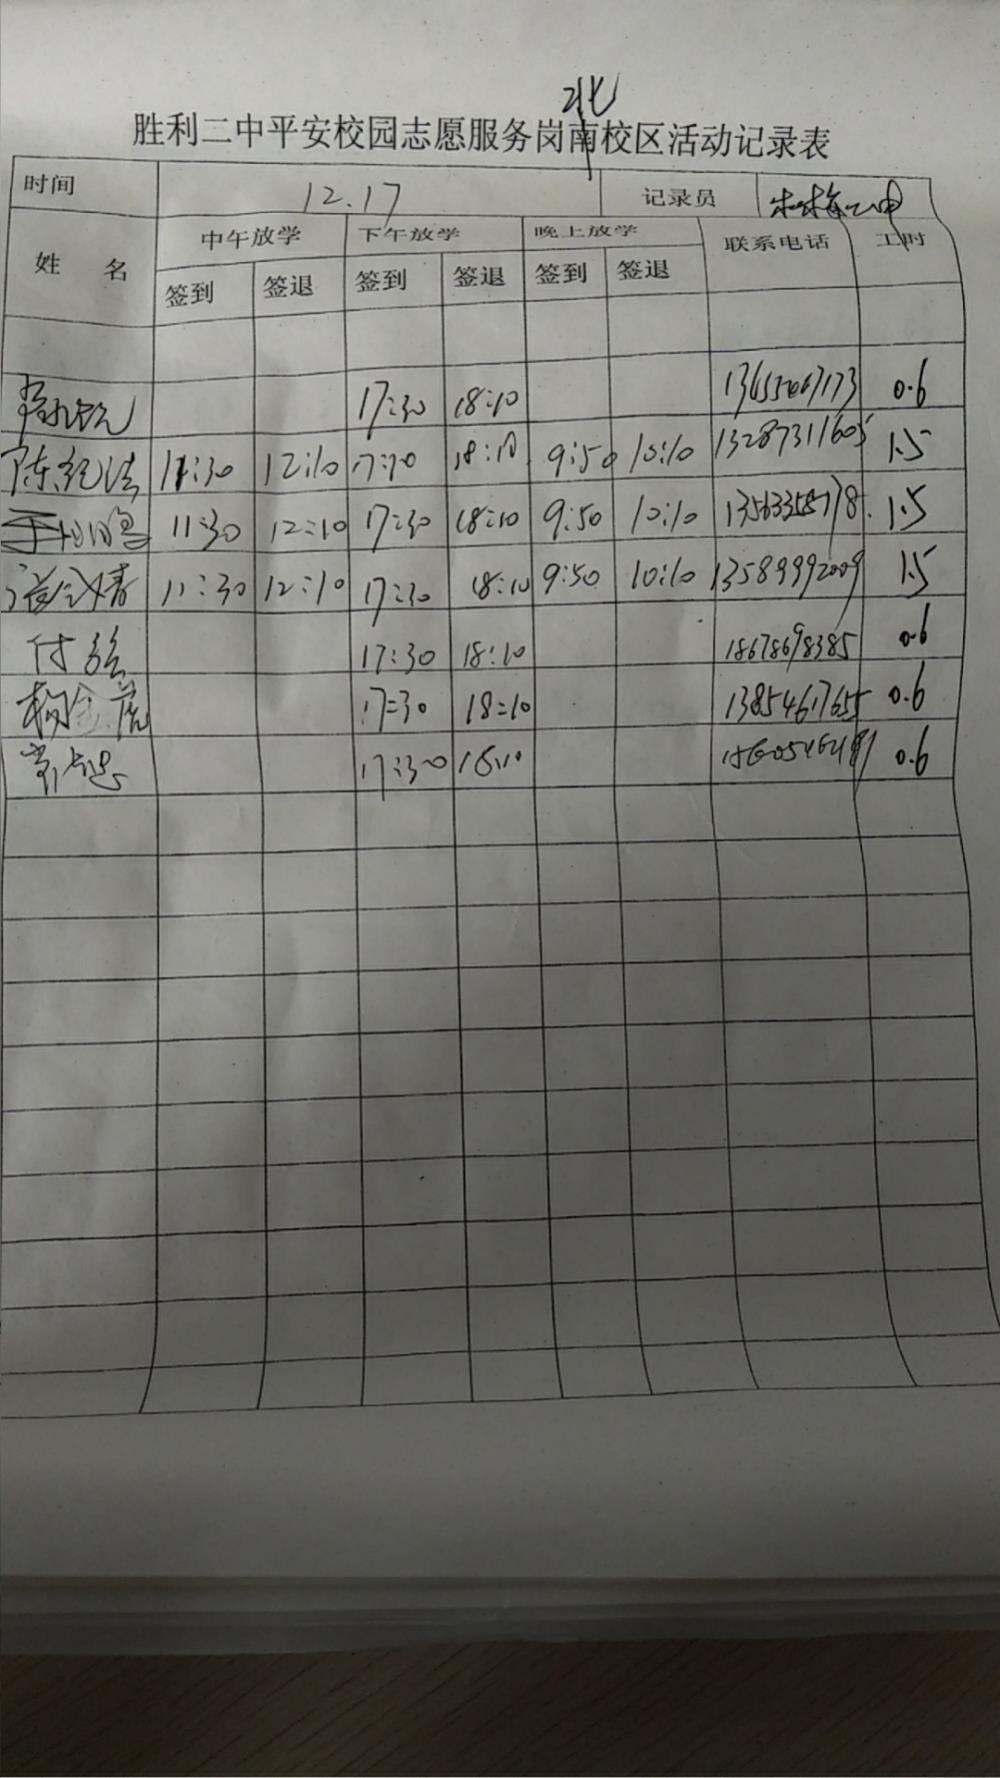 北
胜利二中平安校园志愿服务岗南校区活动记录表
时间 12.17 记录员
姓 名 中午放学 下午放学 晚上放学 联系电话 工时
签到 签退 签到 签退 签到 签退
17:30 18:10 0.6
陈纪法 11:30 12:10 17:30 18:10 9:50 10:10 13287311605 1.5
11:30 12:10 17:30 18:10 9:50 10:10 1.5
11:30 12:10 17:30 18:10 9:50 10:10 13589992009 1.5
付 17:30 18:10 18678698385 0.6
杨金虎 17:30 18:10 13854617655 0.6
常 17:30 18:10 0.6